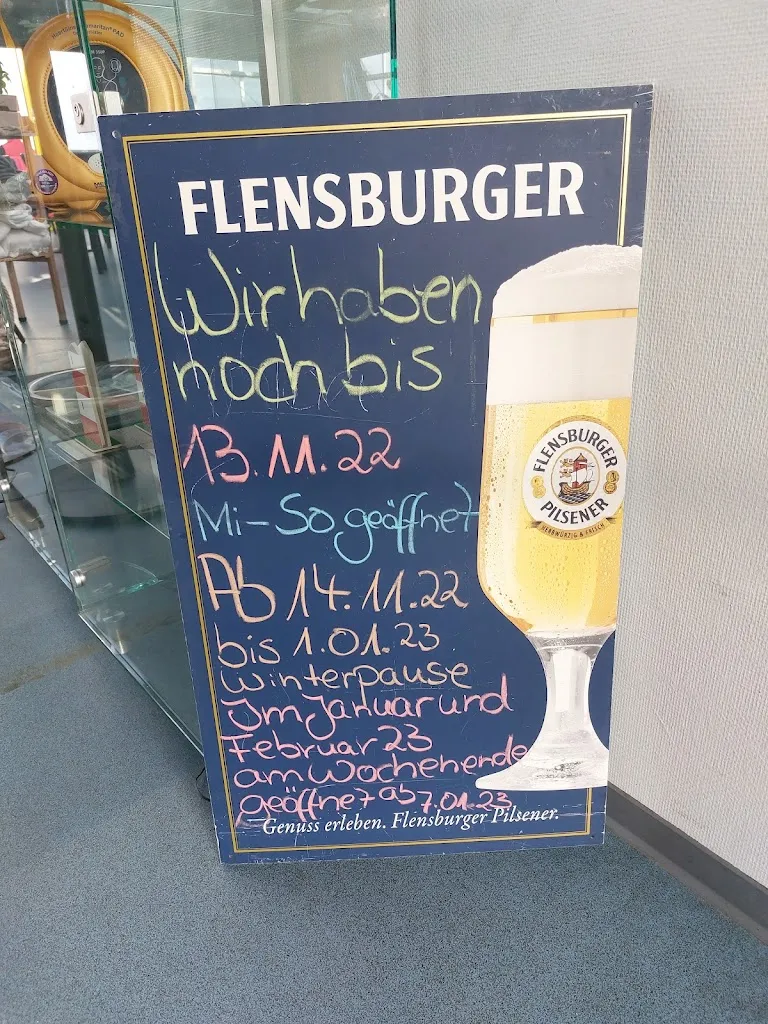 FLENSBURGER
Wir haben
noch bis
13.11.22
Mi-So geöffnet
Ab 14.11.22
bis 1.01.23
Winterpause
Im Januar und
Februar 23
am Wochenende
geöffnet ab 7.01.23
Genuss erleben. Flensburger Pilsener.
FLENSBURGER
PILSENER
HERBWÜRZIG & FRISCH